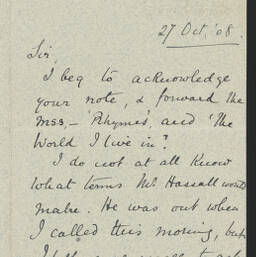 27 Oct. '08.
Sir,
I beg to acknowledge
your note, & forward the
mss, – 'Rhymes', and 'The
World I live in'.
I do not at all know
what terms Mr Hassall would
make. He was out when
I called this morning, but